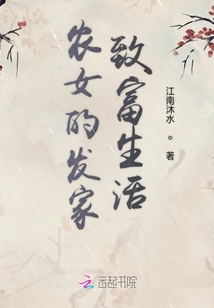 农女的发家
致富生活
江南沐水 著
云起书院